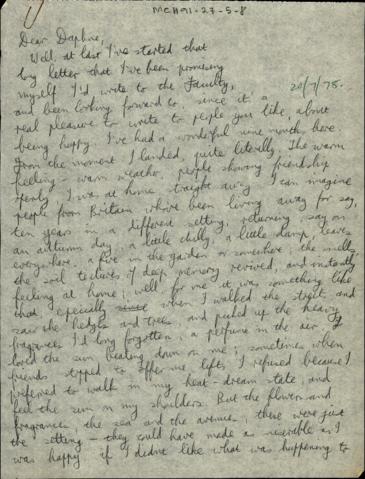 MCH91-27-5-8
Dear Daphne,
Well, at last I've started that
long letter that I've been promising
myself I'd write to the Faculty,
20/7/75.
and been looking forward to, since it's a
real pleasure to write to people you like, about
being happy. I've had a wonderful nine months here
from the moment I landed, quite literally. The warm
feeling - warm weather, people showing friendship
openly, I was at home straight away. I can imagine
people from Britain who've been living away for say,
ten years in a different setting, returning say on
an autumn day, a little chilly, a little damp, leaves
everywhere, a fire in the garden or somewhere; the smells
the soil textures of deep memory revived, and instantly
feeling at home; well for me it was something like
that, especially since when I walked the streets and
saw the hedges and trees, and picked up the heavy
fragrances I'd long forgotten, a perfume in the air. I
loved the sun beating down on me; sometimes when
friends stopped to offer me lifts, I refused because I
preferred to walk in my heat-dream state, and
feel the sun on my shoulders. But the flowers and
fragrances, the sea and the avenues, these were just
the setting - they could have made as miserable as I
was happy if I didn't like what was happening to